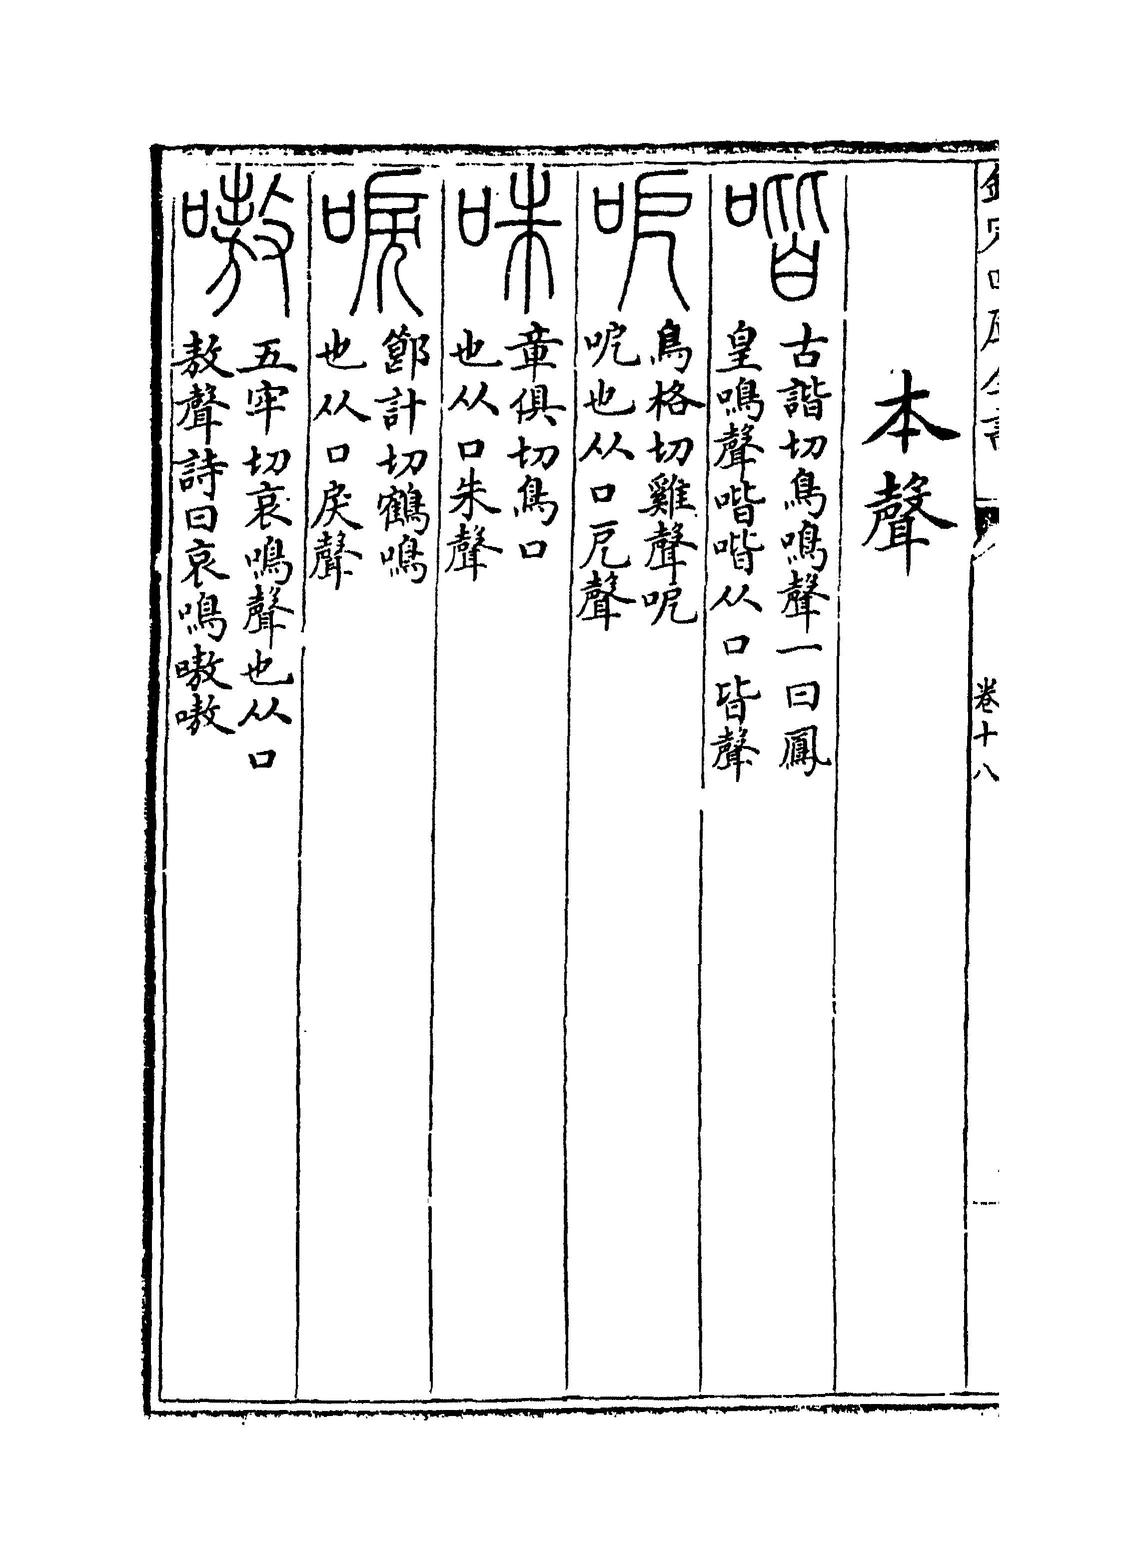 欽定四庫全書
卷十八
本聲
喈
古諧切鳥鳴聲一曰鳳
皇鳴聲喈喈从口皆聲
呝
烏格切雞聲呝
呝也从口戹聲
咮
章俱切鳥口
也从口朱聲
唳
節計切鶴鳴
也从口戾聲
嗷
五牢切哀鳴聲也从口
敖聲詩曰哀鳴嗷嗷